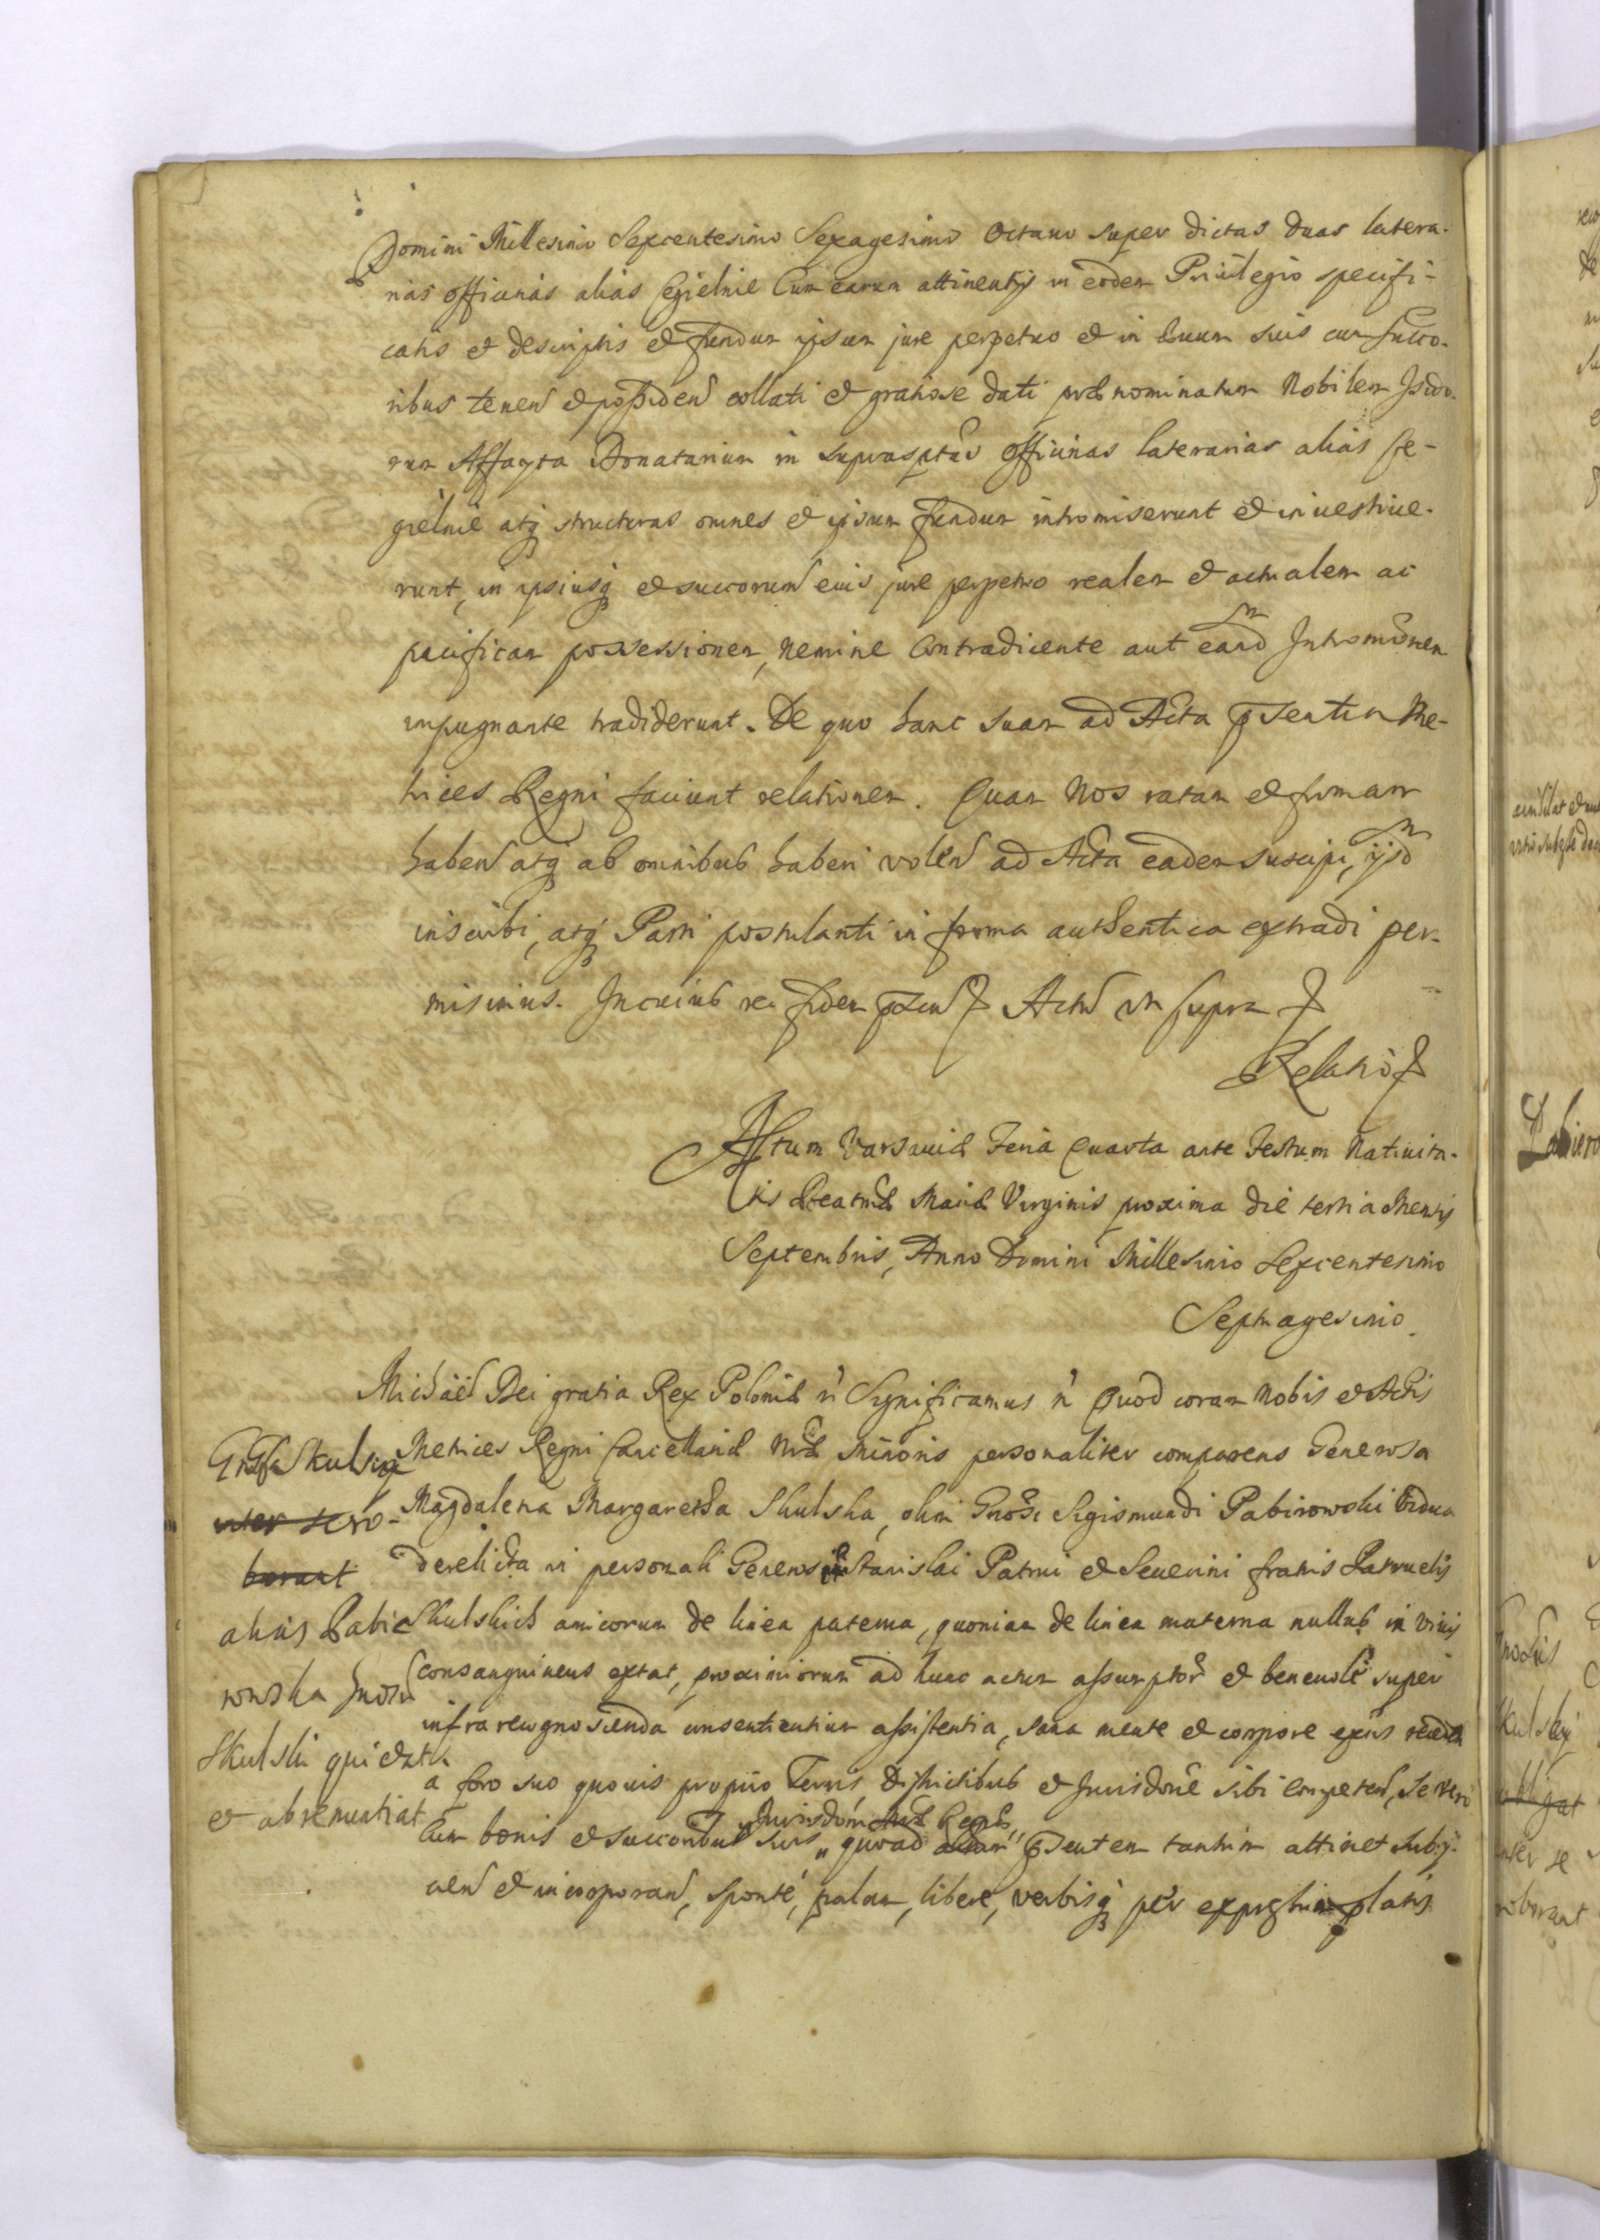 Domini Millesimo Sexcentesimo Sexagesimo Octavo super dictas duas latera-
rias officinas alias Cegielnie cum earum attinentijs in eodem Privilegio specifi-
catis et descriptis et fundum ipsum jure perpetuo et in suis cum succo-
ribus tenen et possiden collati et gratiose dati præ nominatum Nobilem Isido-
rum Affayta Donatarium in suprasptas officinas laterarias alias Ce-
gielnie atq structuras omnes et ipsum fundum intromiserunt et investive-
runt, in ipsiusq et succorum eius jure perpetuo realem et actualem ac
pacificam possessionem, Nemine Contradicente aut eand Intromonem
impugnante tradiderunt. De quo hanc suam ad Acta psentia Me-
trices Regni faciunt relationem. Quam Nos ratam et firmam
haben atq ab omnibus haberi volen ad Acta eadem suscipi, ijsd
inscribi, atq Parti postulanti in forma authentica extradi per-
misimus. In cuius rei fidem psen Act ut supra
Relatio
Actum Varsaviæ Feria Quarta ante Festum Nativita-
tis Beatmæ Mariæ Virginis proxima die tertia Mensis
Septembris, Anno Domini Millesimo Sexcentesimo
Septuagesimo
Michaël Dei gratia Rex Poloniæ Significamus Quod coram Nobis et Actis
Metrices Regni Cancellariæ Nræ Minoris personaliter comparens Generosa
Magdalena Margaretha Skulska, olim Gnosi Sigismundi Pabirowski Vidua
derelicta in personali Generos Stanislai Patrui et Severini fratris Patruelis
Skulskich amicorum de linea paterna, quoniam de linea materna nullus in vivis
consanguineus extat, proximiorum ad hunc actum assumptor et benevole super
infra recognoscenda consentientium assistentia, sana mente et corpore exens
a foro suo quovis proprio Terris, Districtibus et Jurisdone sibi competen, se vero
cum bonis et succoribus suis
Jurisdom
quoad psentem tantum attinet subij-
cien et incorporan, sponte, palam, libere, verbisq per expressum platis
Skulska
inter se ro-
borant
alias Pabie
rowska
Skulski quietat
et abrenuntiat